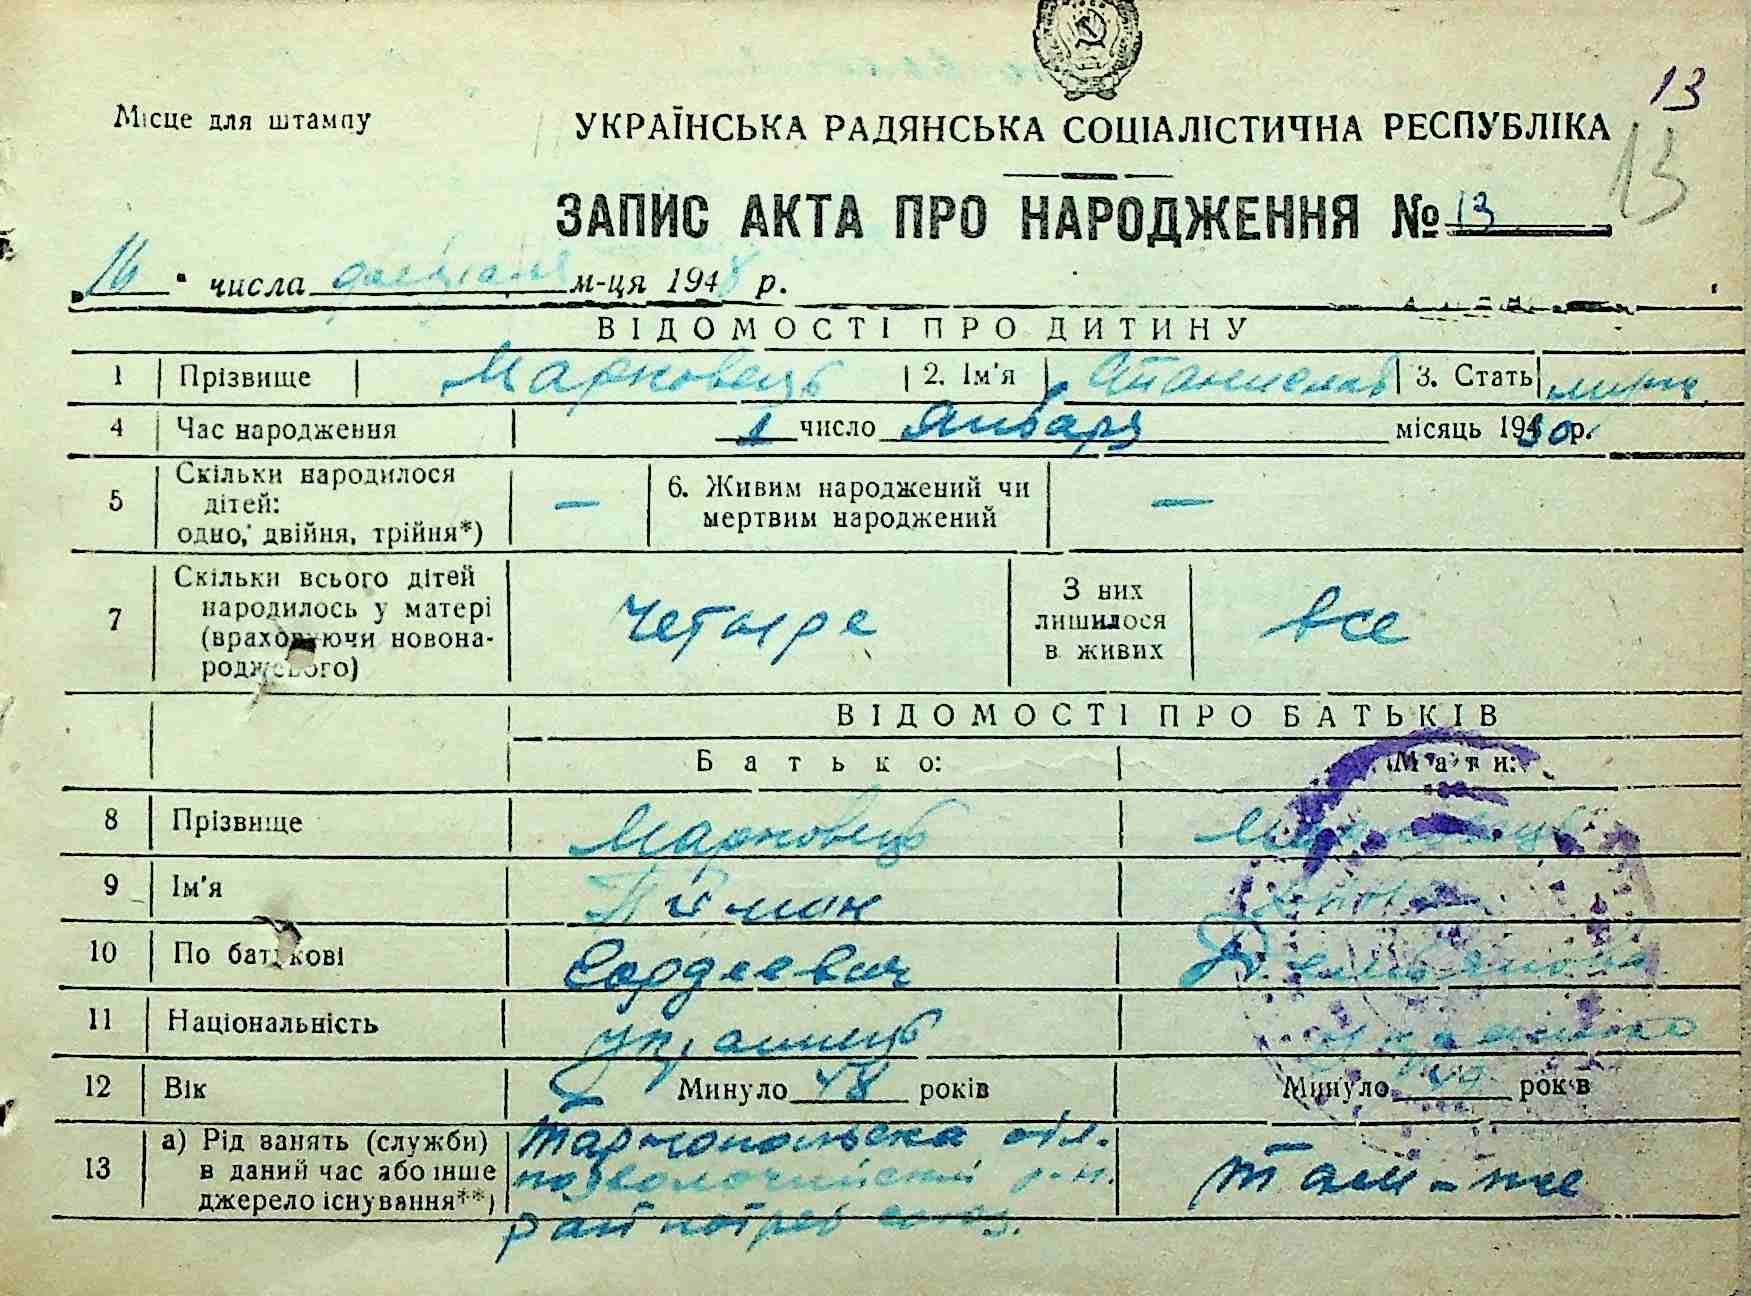 13
Місце для штампу
УКРАЇНСЬКА РАДЯНСЬКА СОЦІАЛІСТИЧНА РЕСПУБЛІКА
13
ЗАПИС АКТА ПРО НАРОДЖЕННЯ № 13
„16 " числа м-ця 1948 р.
ВІДОМОСТІ ПРО ДИТИНУ
1 Прізвище Марковець 2. Ім'я Станислав 3. Стать
4 Час народження 1 число Января місяць 1930 р.
5 Скільки народилося дітей: одно, двійня, трійня*) — 6. Живим народжений чи мертвим народжений —
7 Скільки всього дітей народилось у матері (враховуючи новонародженого) четыре З них лишилося в живих все
ВІДОМОСТІ ПРО БАТЬКІВ
Батько: Мати:
8 Прізвище Марковець Марковець
9 Ім'я
10 По батькові
11 Національність українець українка
12 Вік Минуло 48 років Минуло років
13 а) Рід занять (служби) в даний час або інше джерело існування**) Тарнопольска обл. там-же
р-н.
райпотребсоюз.